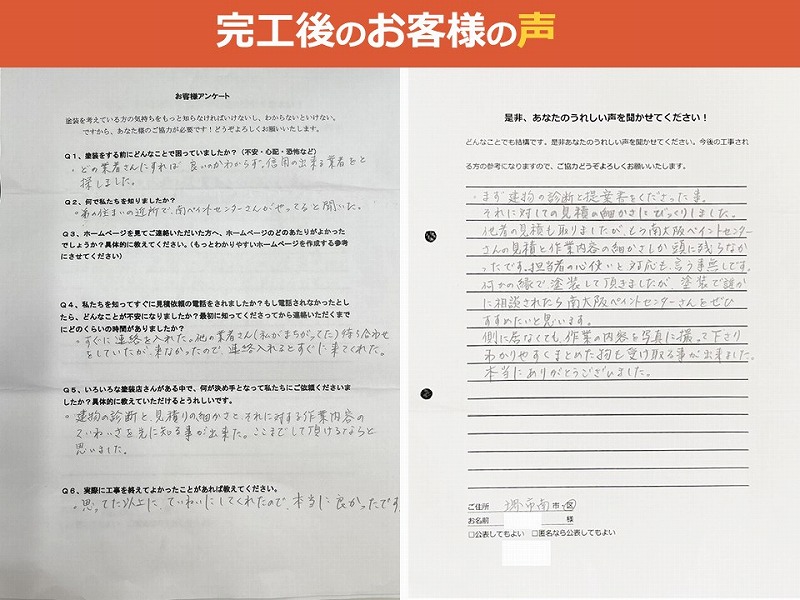 完工後のお客様の声
お客様アンケート
塗装を考えている方の気持ちをもっと知らなければいけないし、わからないといけない。
ですから、あなた様のご協力が必要です!どうぞよろしくお願いいたします。
Q1、塗装をする前にどんなことで困っていましたか?(不安・心配・恐怖など)
・どの業者さんにすれば良いのかわからず、信用の出来る業者をと
探しました。
Q2、何で私たちを知りましたか?
の住まいの近所で、南ペイントセンターさんがやってると聞いた。
Q3、ホームページを見てご連絡いただいた方へ、ホームページのどのあたりがよかった
でしょうか?具体的に教えてください。(もっとわかりやすいホームページを作成する参考
にさせてください)
Q4、私たちを知ってすぐに見積依頼の電話をされましたか?もし電話されなかったとし
たら、どんなことが不安になりましたか?最初に知ってくださってから連絡いただくまで
にどのくらいの時間がありましたか?
・すぐに連絡を入れた。他の業者さん(私がまちがってた)待ち合わせ
をしていたが、来なかったので、連絡入れるとすぐに来てくれた。
Q5、いろいろな塗装店さんがある中で、何が決め手となって私たちにご依頼くださいま
したか?具体的に教えていただけるとうれしいです。
・建物の診断と、見積りの細かさと、それに対する作業内容の
ていねいさを先に知る事が出来た。ここまでして頂けるならと
思いました。
Q6、実際に工事を終えてよかったことがあれば教えてください。
・思ってた以上に、ていねいにしてくれたので、本当に良かったです
是非、あなたのうれしい声を聞かせてください!
どんなことでも結構です。是非あなたのうれしい声を聞かせてください。今後の工事され
る方の参考になりますので、ご協力どうぞよろしくお願いいたします。
・まず建物の診断と提案書をくださった事。
それに対しての見積の細かさにびっくりしました。
他者の見積も取りましたが、もう南大阪ペイントセンター
さんの見積と作業内容の細かさしか頭に残らなか
ったです。担当者の心使いと対応も、言う事無しです。
何かの縁で、塗装して頂きましたが、塗装で誰か
に相談されたら南大阪ペイントセンターさんをぜひ
すすめたいと思います。
側に居なくても、作業の内容を写真に撮って下さり
わかりやすくまとめた物も受け取る事が出来ました。
本当にありがとうございました。
ご住所 堺市南 市・区
お名前 様
□公表してもよい □匿名なら公表してもよい